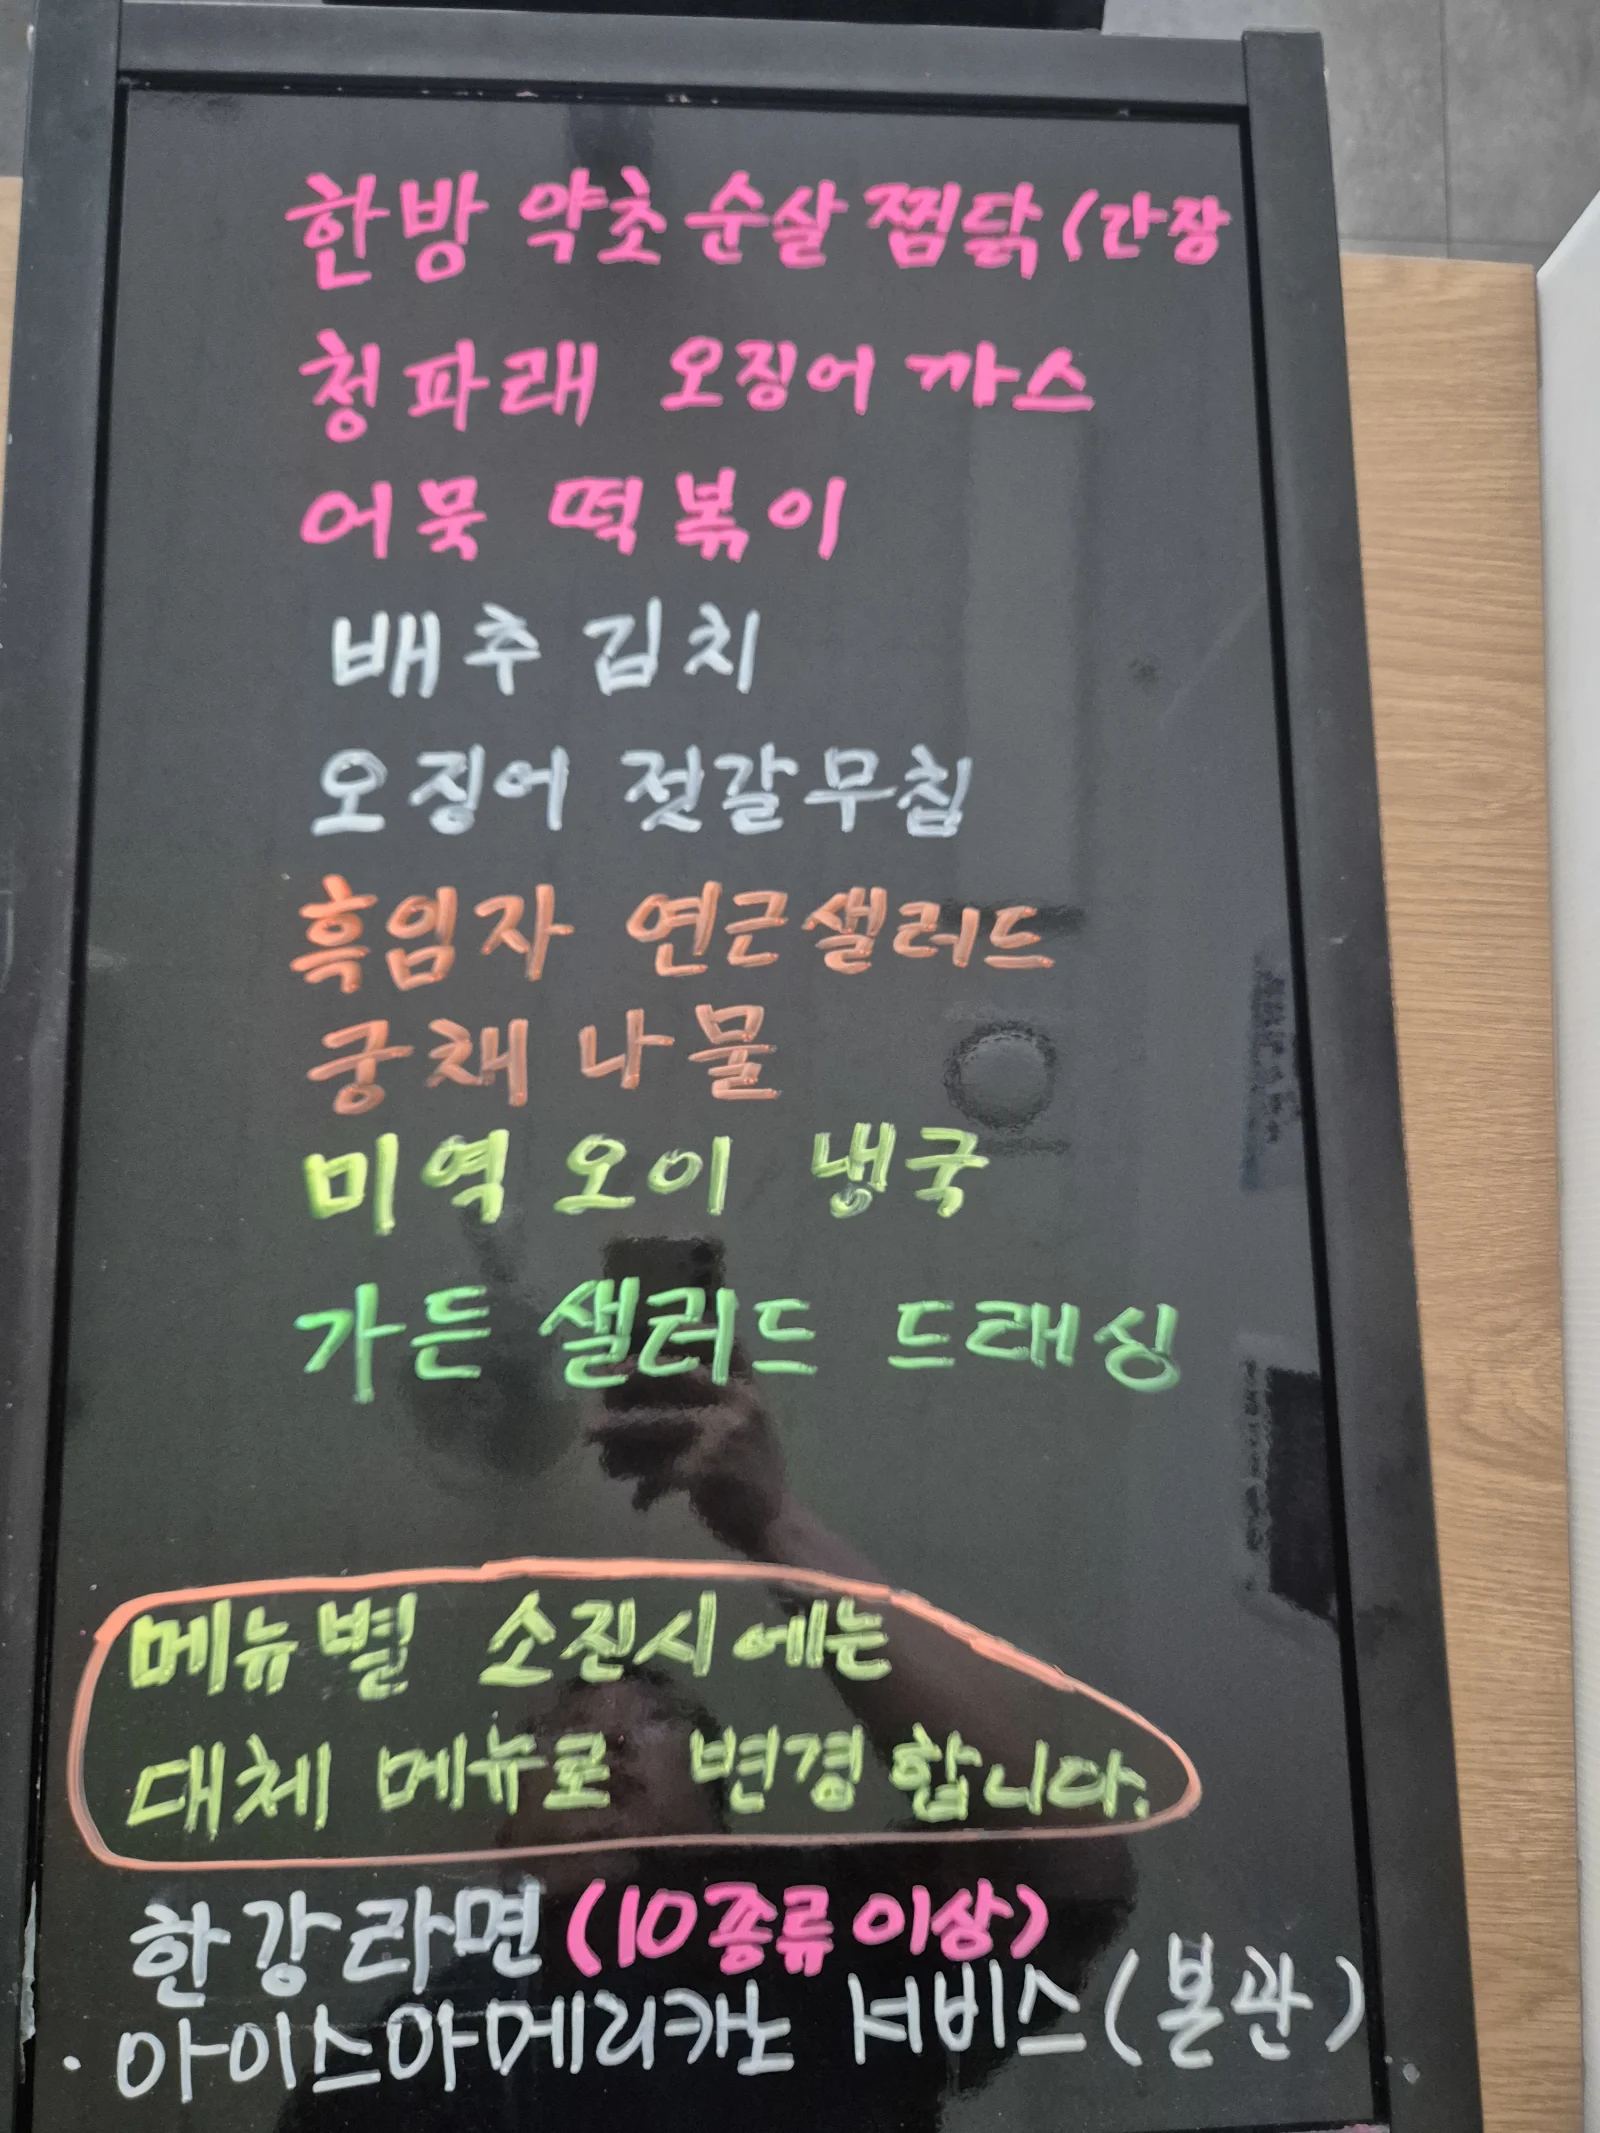 한방 약초 순살 찜닭 (간장
청파래 오징어 까스
어묵 떡볶이
배추 김치
오징어 젓갈무침
흑임자 연근샐러드
궁채 나물
미역 오이 냉국
가든 샐러드 드래싱
메뉴별 소진시에는
대체 메뉴로 변경합니다.
한강라면 (10종류이상)
· 아이스아메리카노 서비스 (본관)